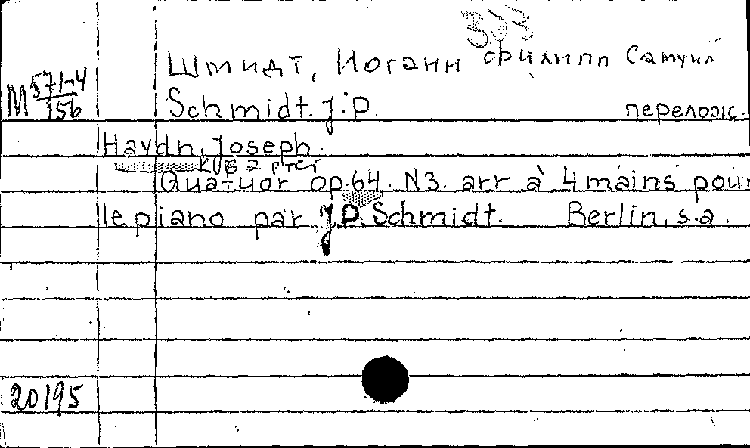 353
Штидт, Иоганн Филипп Самуил
М 571-4
156
Schmidt. J.P. перелож.
Haydn, Joseph.
Quatuor op.64. N3. arr à 4 mains pour
le piano par J.P. Schmidt. Berlin, s.a.
20195